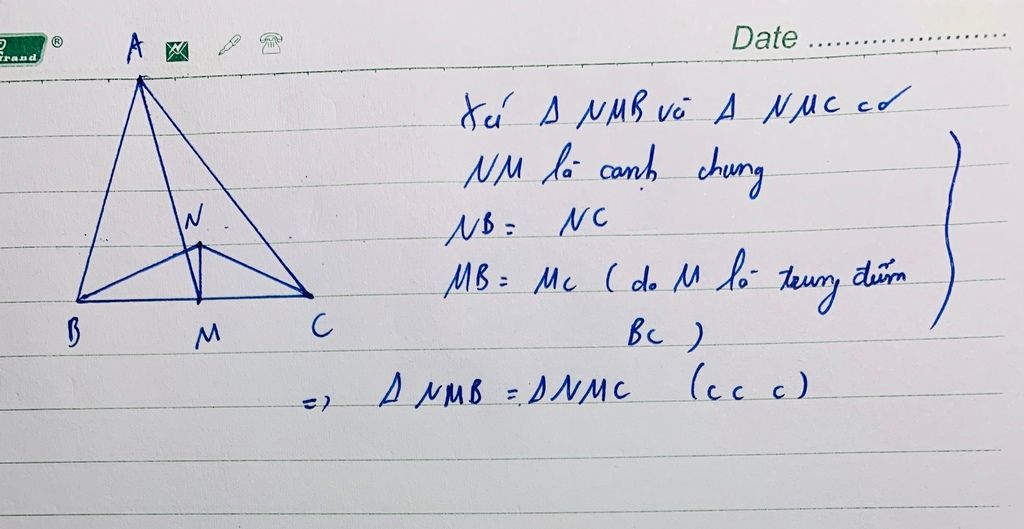 Grand ®
Date
A
N
B
M
C
Xét Δ NMB và Δ NMC có
NM là cạnh chung
NB = NC
MB = MC ( do M là trung điểm
BC )
=> Δ NMB = Δ NMC ( c c c )